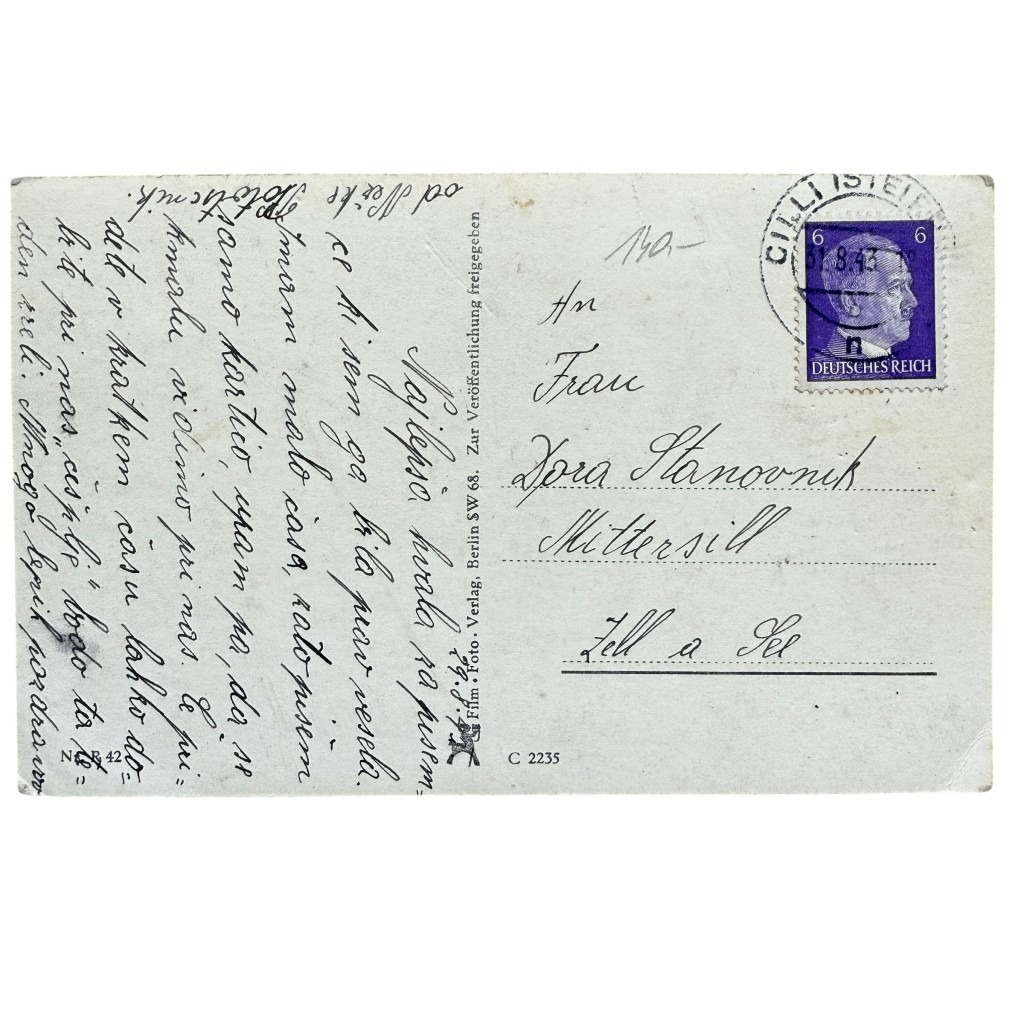 29.8.
Najlepša hvala za pisem=
ce ki sem ga bila prav vesela.
Imam malo časa, zato pišem
samo kartico, upam pa, da se
kmalu vidimo pri nas. Če pri=
dete v kratkem času lahko do=
bite pri nas „češplje" bodo ta te=
den zreli. Mnogo lepih pozdravov
od
Film-Foto-Verlag, Berlin SW 68. Zur Veröffentlichung freigegeben
42
C 2235
140-
CILLI (STEIERM
31.8.43
n
6 6
DEUTSCHES REICH
An
Frau
Dora Stanovnik
Mittersill
Zell a See